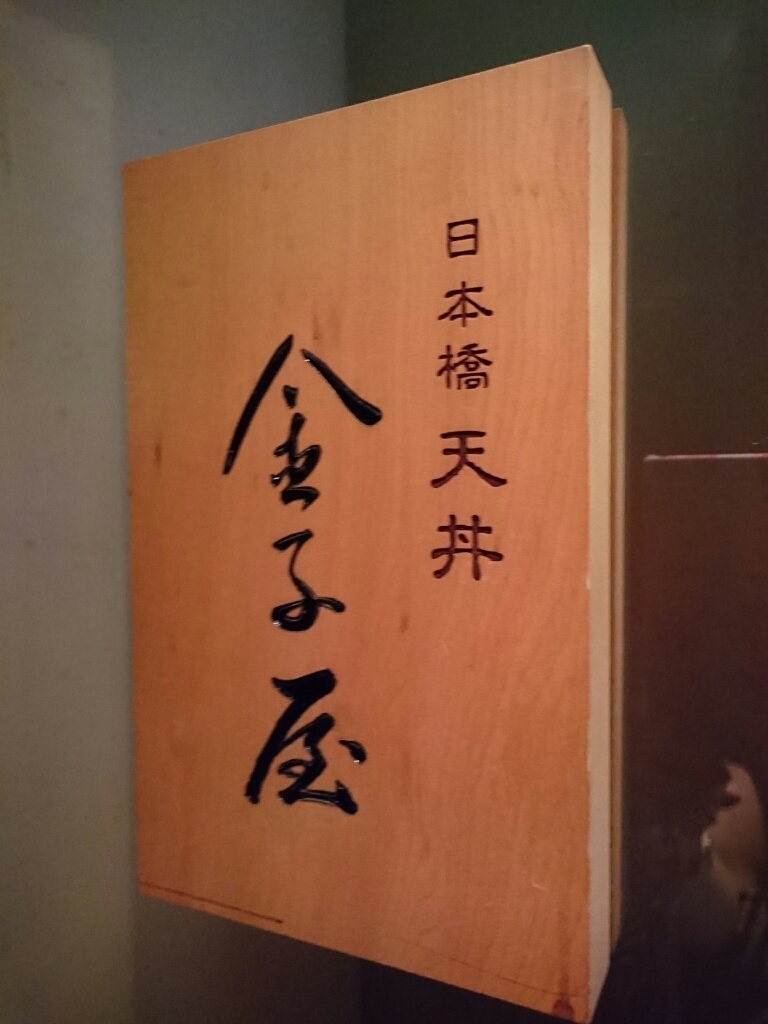 日本橋天丼
金子屋